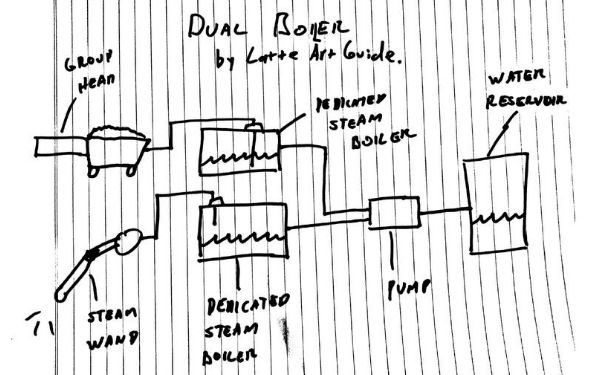 DUAL BOILER
by Latte Art Guide.
GROUP
HEAD
DEDICATED
STEAM
BOILER
WATER
RESERVOIR
PUMP
STEAM
WAND
DEDICATED
STEAM
BOILER